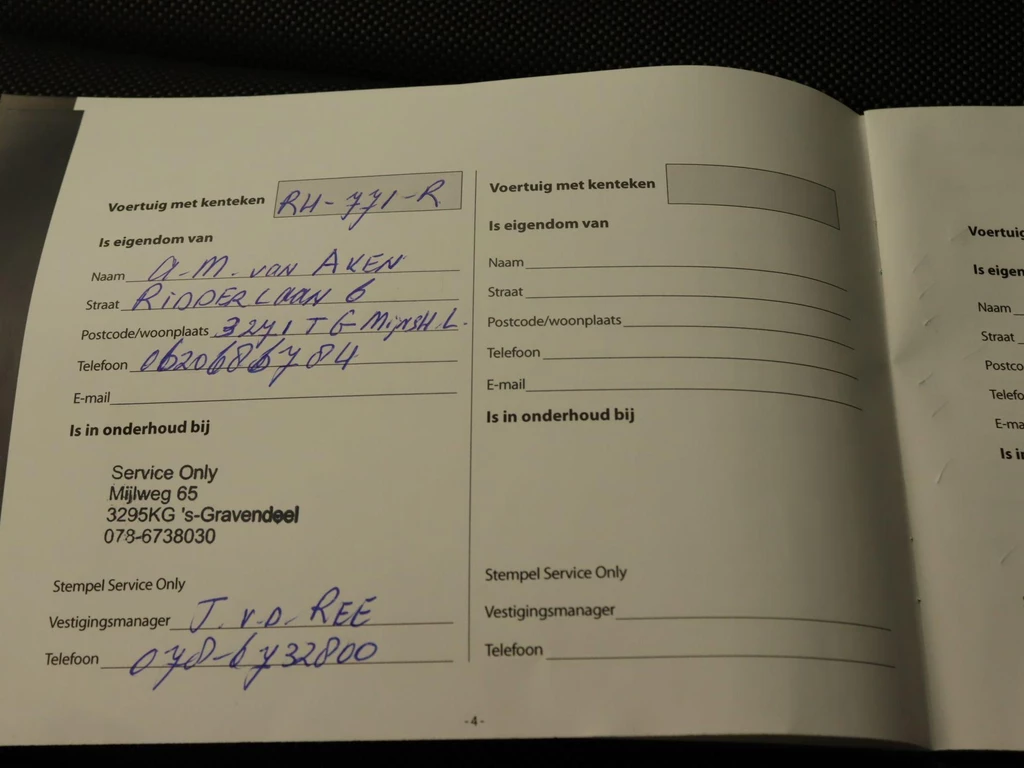 Voertuig met kenteken RH-771-R
Is eigendom van
Naam A.M. van AKEN
Straat RIDDERLAAN 6
Postcode/woonplaats 3271 TG MijnsH.L.
Telefoon 0620686784
E-mail
Is in onderhoud bij
Service Only
Mijlweg 65
3295KG 's-Gravendeel
078-6738030
Stempel Service Only
Vestigingsmanager J. v.d. REE
Telefoon 078-6732800
Voertuig met kenteken
Is eigendom van
Naam
Straat
Postcode/woonplaats
Telefoon
E-mail
Is in onderhoud bij
Stempel Service Only
Vestigingsmanager
Telefoon
- 4 -
Voertuig
Is eigen
Naam
Straat
Postco
Telefo
E-ma
Is in